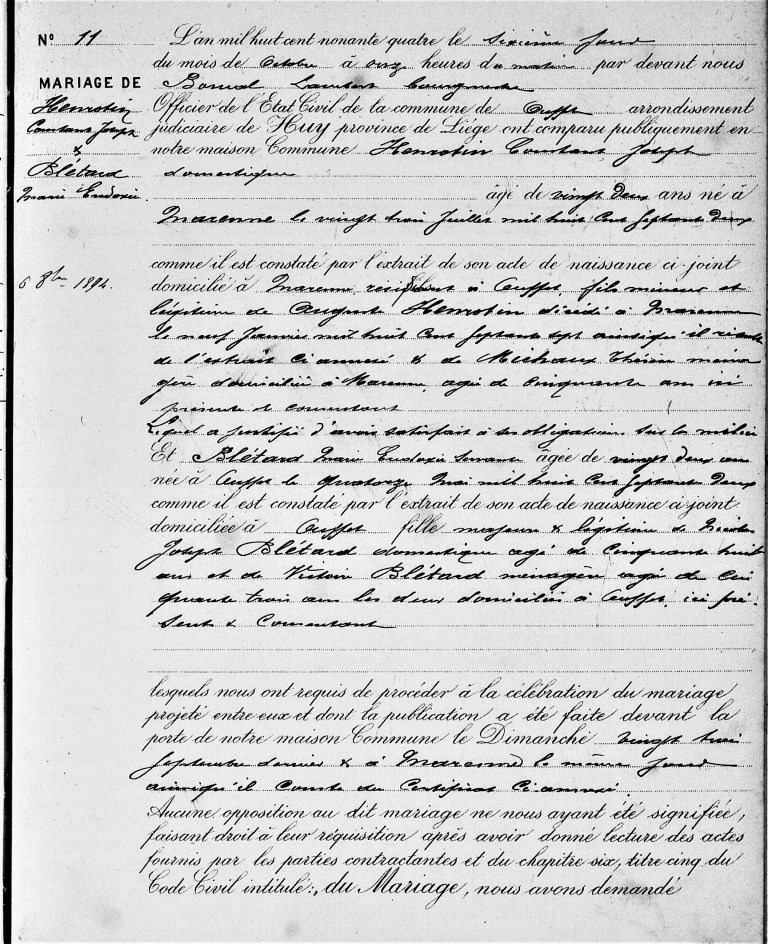 N° 11
L'an mil huit cent nonante quatre le sixième jour
du mois de Octobre à onze heures du matin par devant nous
MARIAGE DE
Bonval Lambert bourgmestre
Henrotin
Constant Joseph
&
Blétard
Marie Eudoxie
Officier de l'Etat Civil de la commune de Ouffet arrondissement
judiciaire de Huy province de Liége ont comparu publiquement en
notre maison Commune Henrotin Constant Joseph
domestique
âgé de vingt deux ans né à
Marenne le vingt trois Juillet mil huit Cent septant deux
comme il est constaté par l'extrait de son acte de naissance ci-joint
6 8bre 1894.
domicilié à Marenne, résident à Ouffet, fils mineur et
légitime de Auguste Henrotin décédé à Marenne
le neuf Janvier mil huit Cent septante sept ainsi qu'il résulte
de l'extrait ci annexé & de Michaux Thérèse ména
gère domiciliée à Marenne, agée de Cinquante ans ici
présente & consentant
Lequel a justifié d'avoir satisfait à ses obligations sur la milice
Et Blétard Marie Eudoxie servante âgée de vingt deux ans
née à Ouffet le quatorze Mai mil huit Cent septant deux
comme il est constaté par l'extrait de son acte de naissance ci-joint
domiciliée à Ouffet fille majeure & légitime de
Joseph Blétard domestique agé de Cinquante huit
ans et de Victoire Blétard ménagère agée de Cin
quante trois ans les deux domiciliés à Ouffet, ici pré
sents & Consentant
lesquels nous ont requis de procéder à la célébration du mariage
projeté entre eux et dont la publication a été faite devant la
porte de notre maison Commune le Dimanche vingt trois
septembre dernier & à Marenne le même jour
ainsi qu'il Conste du Certificat Ci annexé
Aucune opposition au dit mariage ne nous ayant été signifiée,
faisant droit à leur réquisition après avoir donné lecture des actes
fournis par les parties contractantes et du chapitre six, titre cinq du
Code Civil intitulé: du Mariage, nous avons demandé